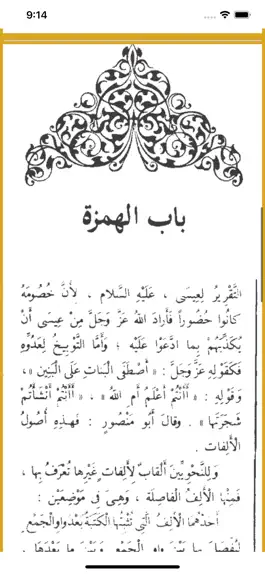 9:14
باب الهمزة
التَّقْرِيرُ لِعِيسَى ، عَلَيْهِ السَّلَام ، لِأَنَّ خُصُومَهُ
كانُوا حُضُوراً فَأَرادَ اللهُ عَزَّ وَجَلَّ مِنْ عِيسَى أَنْ
يُكَذِّبَهُمْ بِما ادَّعَوْا عَلَيْه ؛ وَأَمَّا التَّوْبِيخُ لِعَدُوِّهِ
فَكَقَوْلِهِ عَزَّ وَجَلَّ : « أَصْطَفَى الْبَناتِ عَلَى الْبَنِينَ » ،
وَقَوْلِهِ : « أَأَنْتُمْ أَعْلَمُ أَمِ اللهُ » ، « أَأَنْتُمْ أَنْشَأْتُمْ
شَجَرَتَها » . وقالَ أَبُو مَنْصُورٍ : فَهذِهِ أُصُولُ
الأَلِفات .
وَلِلنَّحْوِيِّينَ أَلْقابٌ لِأَلِفاتٍ غَيْرِها تُعْرَفُ بِها ،
فَمِنْها الأَلِفُ الْفاصِلَة ، وَهِىَ فِى مَوْضِعَيْن :
أَحَدُهُما الأَلِفُ الَّتِي تُثْبِتُها الْكَتَبَةُ بَعْدَ واوِ الْجَمْعِ
لِيُفْصَلَ بِها بَيْنَ واوِ الْجَمْعِ وَبَيْنَ ما بَعْدَها